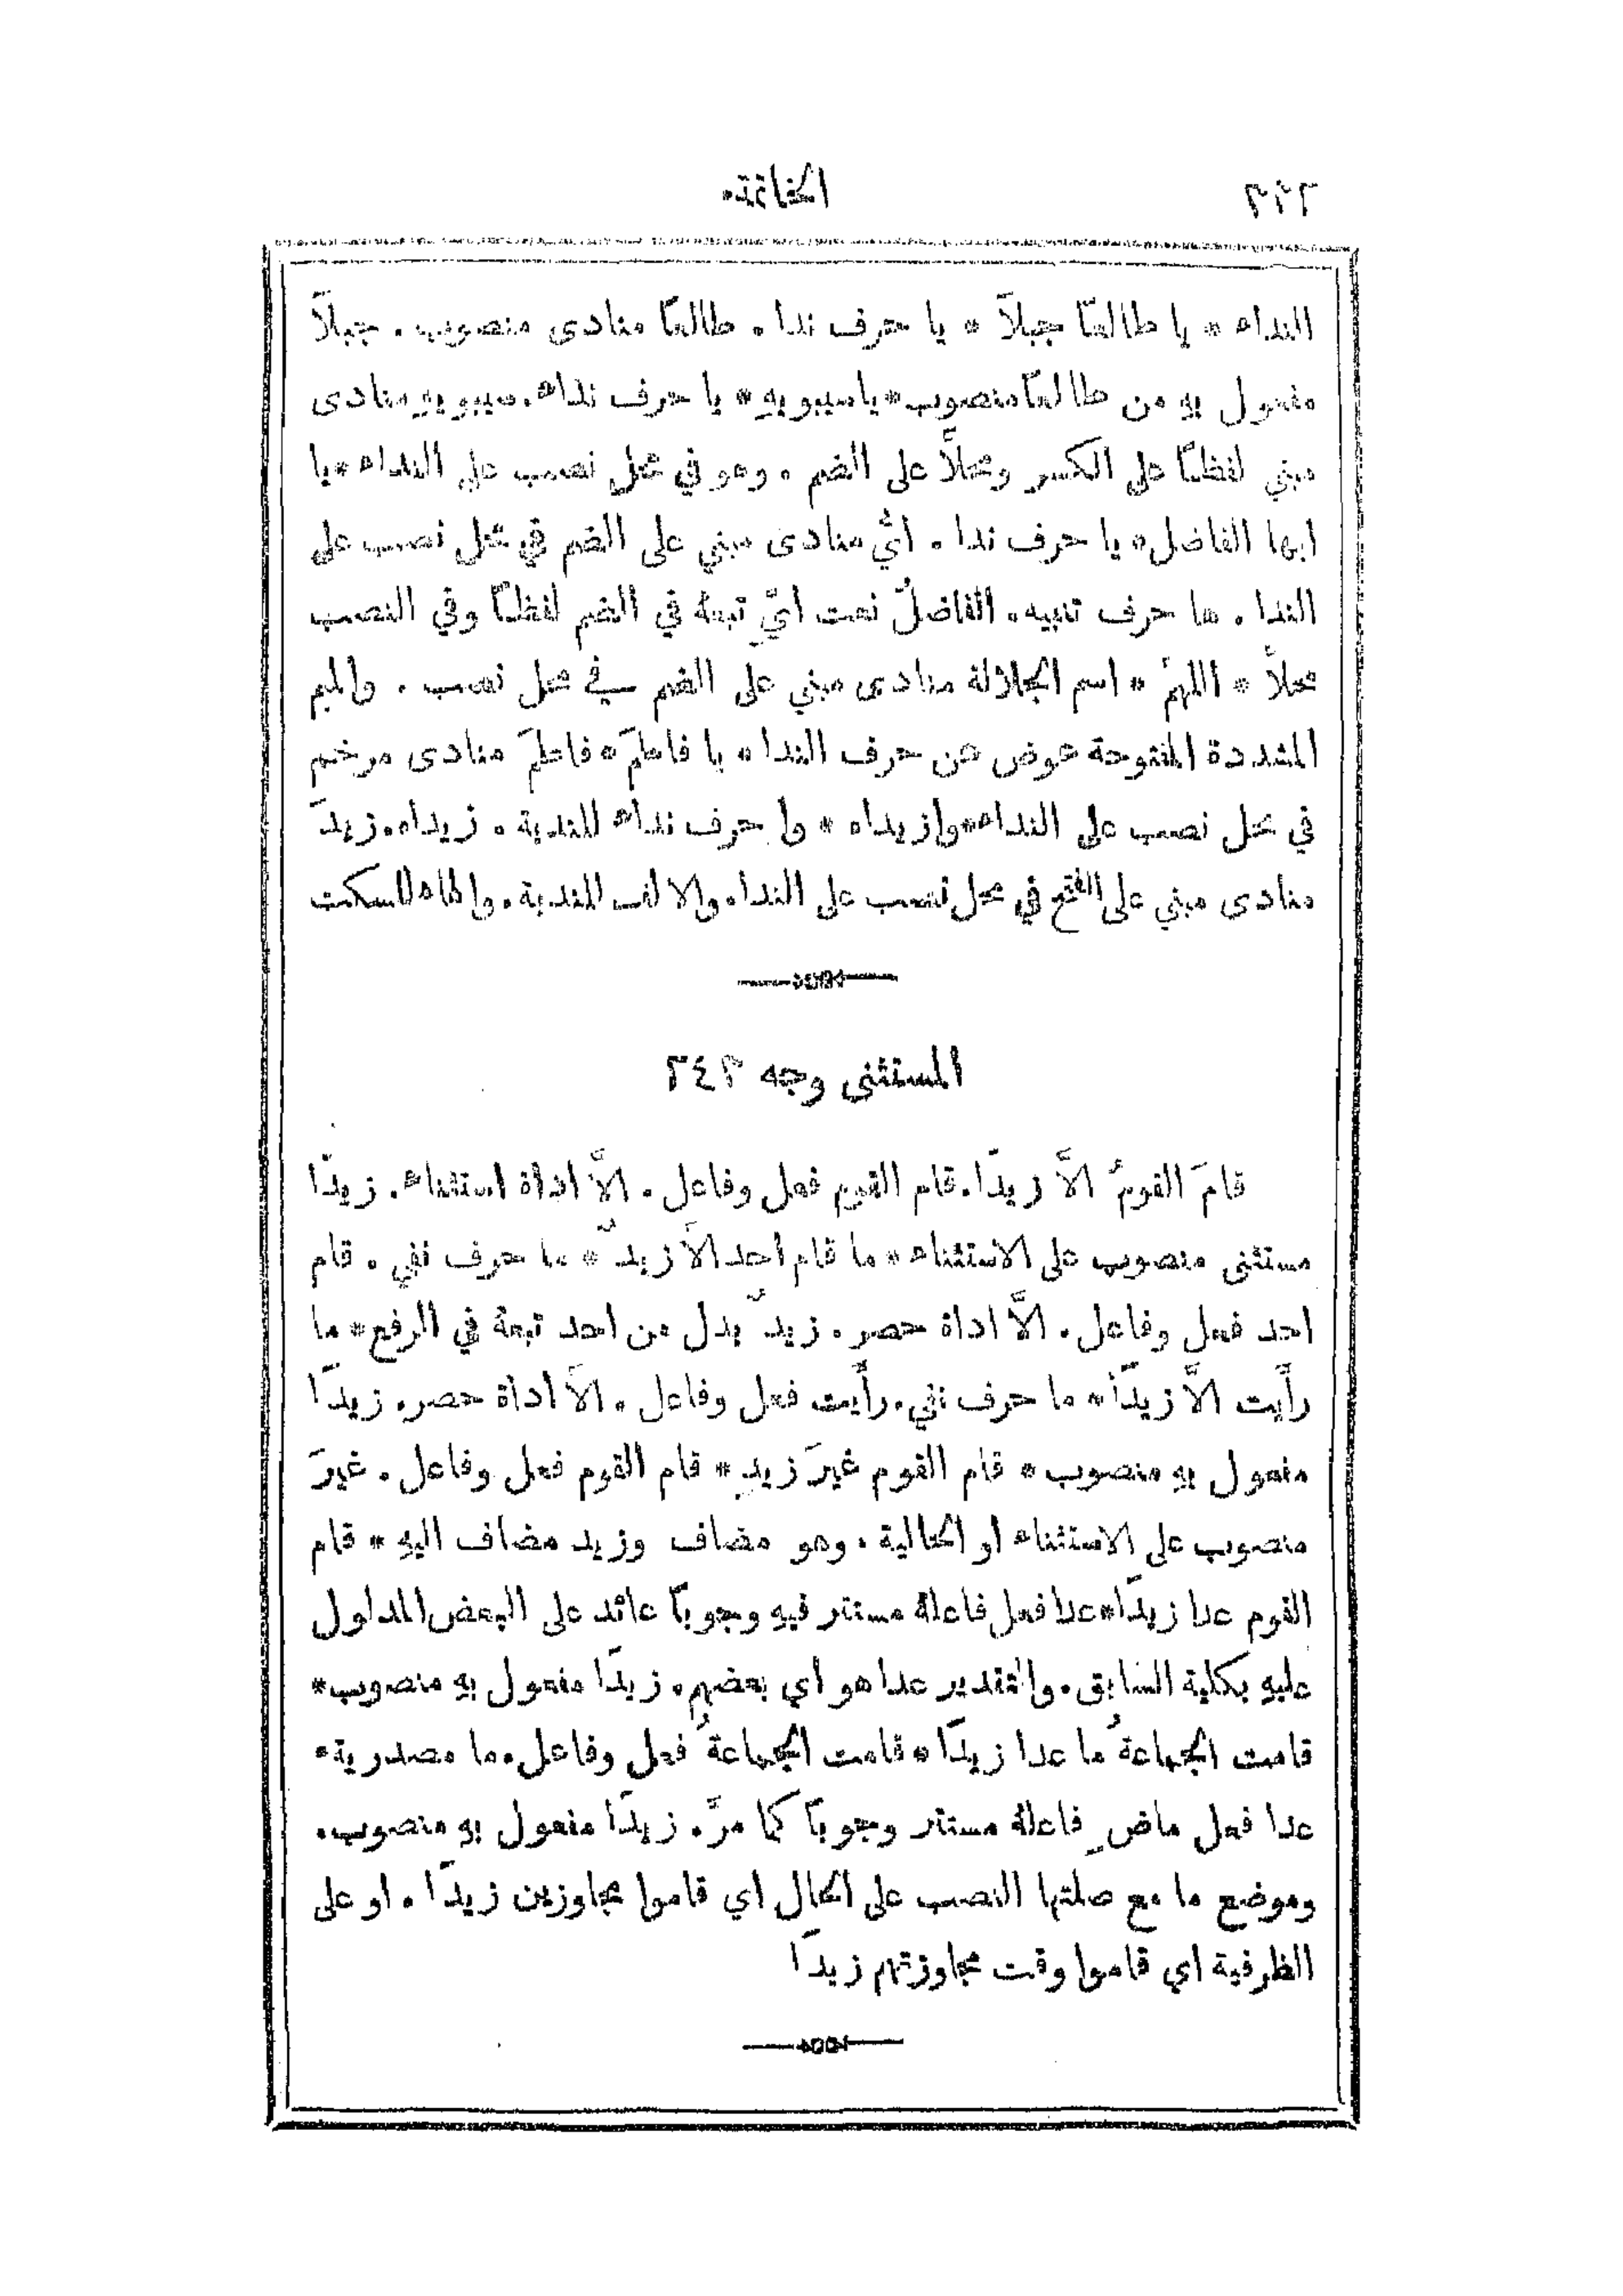 ٣٢٢ الخاتمة.
النداء * يا طالعًا جبلاً * يا حرف ندا. طالعًا منادى منصوب. جبلاً
مفعول به من طالعًا منصوب * يا سيبويه * يا حرف نداء. سيبويه منادى
مبني لفظًا على الكسر ومحلاً على الضم. وهو في محل نصب على النداء * يا
ايها الفاضل * يا حرف ندا. ايُّ منادى مبني على الضم في محل نصب على
الندا. ها حرف تنبيه. الفاضلُ نعت ايّ تبعهُ في الضم لفظًا وفي النصب
محلاً * اللهمَّ * اسم الجلالة منادى مبني على الضم في محل نصب. والميم
المشددة المفتوحة عوض عن حرف الندا * يا فاطمَ * فاطمَ منادى مرخم
في محل نصب على النداء * وا زيداه * وا حرف نداء للندبة. زيداه. زيدَ
منادى مبني على الفتح في محل نصب على الندا. والالف للندبة. والهاء للسكت
المستثنى وجه ٢٤٣
قامَ القومُ الاَّ زيدًا. قام القوم فعل وفاعل. الاَّ اداة استثناء. زيدًا
مستثنى منصوب على الاستثناء * ما قام احد الاَّ زيدٌ * ما حرف نفي. قام
احد فعل وفاعل. الاَّ اداة حصر. زيدٌ بدل من احد تبعهُ في الرفع * ما
رأَيت الاَّ زيدًا * ما حرف نفي. رأَيت فعل وفاعل. الاَّ أداة حصر. زيدًا
مفعول به منصوب * قام القوم غيرَ زيدٍ * قام القوم فعل وفاعل. غيرَ
منصوب على الاستثناء او الحالية. وهو مضاف وزيد مضاف اليهِ * قام
القوم عدا زيدًا * عدا فعل فاعلهُ مستتر فيهِ وجوبًا عائد على البعض المدلول
عليهِ بكلية السابق. والتقدير عدا هو أي بعضهم. زيدًا مفعول بهِ منصوب *
قامت الجماعةُ ما عدا زيدًا * قامت الجماعةُ فعل وفاعل. ما مصدرية.
عدا فعل ماضٍ فاعلهُ مستتر وجوبًا كما مرَّ. زيدًا مفعول بهِ منصوب.
وموضع ما مع صلتها النصب على الحال اي قاموا مجاوزين زيدًا. او على
الظرفية اي قاموا وقت مجاوزتهم زيدًا